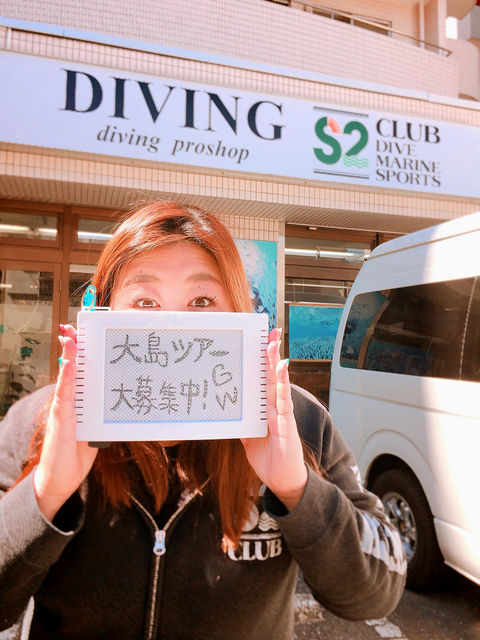 DIVING
diving proshop
S2
CLUB
DIVE
MARINE
SPORTS
大島ツアー
GW
大募集中!
CLUB